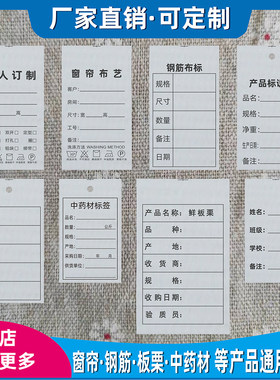 厂家直销·可定制
人订制
窗帘布艺
客户:
房间:
尺寸:宽 高
工号:
备注:
洗涤方法 WASHING METHOD
钢筋布标
规格
尺寸
数量
备注
日期
产品标识
品名:
规格:
净重:
生产日期:
备注:
中药材标签
品名:
数量: 公斤
规格:
产地:
采购日期: 年 月
供货单位:
产品名称:鲜板栗
品种:
产地:
收货商:
规格:
收购日期:
验质员:
姓名:
班级:
学校:
店
更多
窗帘·钢筋·板栗·中药材 等产品通用